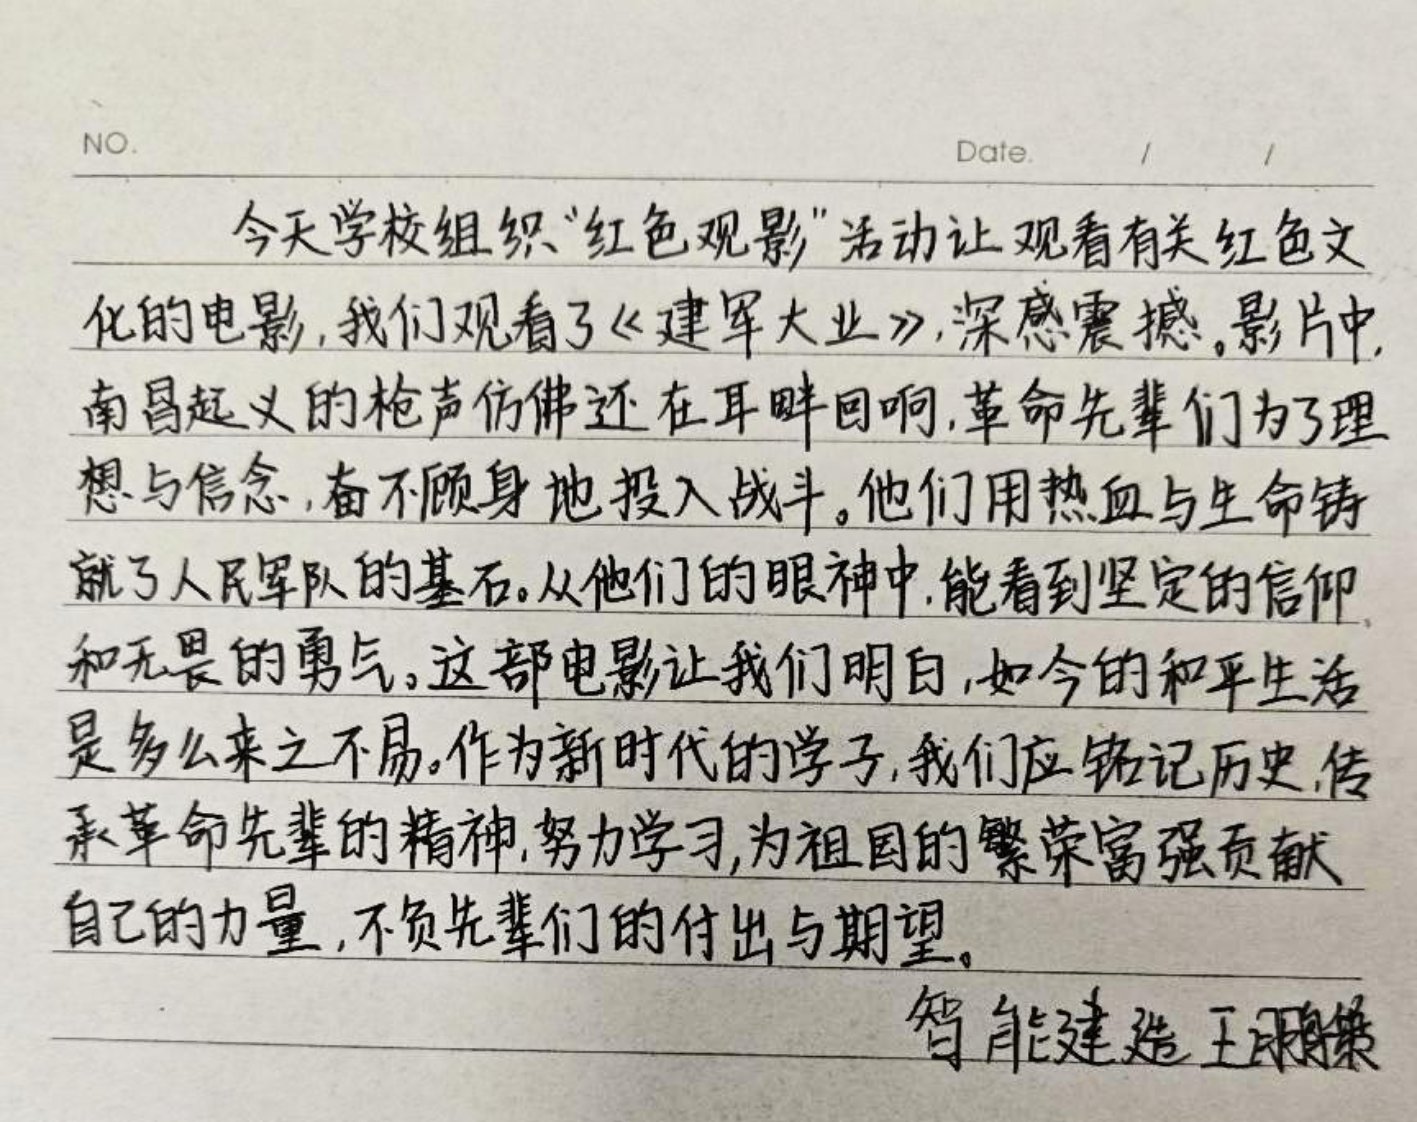 NO. Date. / /
今天学校组织“红色观影”活动让观看有关红色文
化的电影,我们观看了《建军大业》,深感震撼。影片中,
南昌起义的枪声仿佛还在耳畔回响,革命先辈们为了理
想与信念,奋不顾身地投入战斗。他们用热血与生命铸
就了人民军队的基石。从他们的眼神中,能看到坚定的信仰
和无畏的勇气。这部电影让我们明白,如今的和平生活
是多么来之不易。作为新时代的学子,我们应铭记历史,传
承革命先辈的精神,努力学习,为祖国的繁荣富强贡献
自己的力量,不负先辈们的付出与期望。
智能建造 王